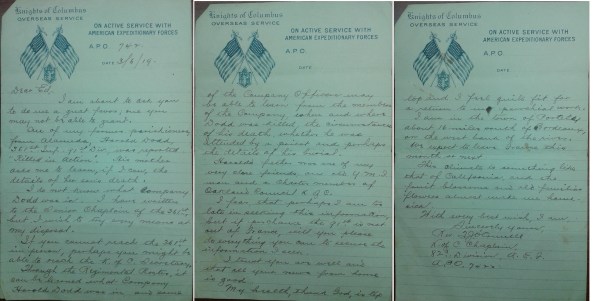 Knights of Columbus
OVERSEAS SERVICE
ON ACTIVE SERVICE WITH
AMERICAN EXPEDITIONARY FORCES
A.P.O. 742
DATE 3/6/19.
Dear Ed.
I am about to ask you
to do me a great favor, one you
may not be able to grant.
One of my former parishioners
from Alameda, Harold Dodd,
Inf. 91st Div. was reported
"Killed in Action". His mother
the
details of his death.
I do not know what Company
Dodd was in. I have written
to the Senior Chaplain of the
but is my only means at
my disposal.
If you cannot reach the
in person, perhaps you might be
able to reach the K of C. Secretary.
Through the Regimental
be learned what Company
Harold Dodd was in and some
Knights of Columbus
OVERSEAS SERVICE
ON ACTIVE SERVICE WITH
AMERICAN EXPEDITIONARY FORCES
A.P.O.
DATE
of the Company Officers may
be able to learn from the members
of the Company, when and where
Dodd was killed, the circumstances
of his death, whether he was
attended by a priest and perhaps
the details of his burial.
Harold's father was one of my
very close friends, an old Y.M.I.
man and a charter member of
Oakland Council K of C.
I fear that perhaps I am too
late in asking this information,
but if any time the 91st is not
out of France, will you please
do everything you can to secure the
information I seek.
I trust you are well and
that all your news from home
is good.
My health, thank God, is tip
Knights of Columbus
OVERSEAS SERVICE
ON ACTIVE SERVICE WITH
AMERICAN EXPEDITIONARY FORCES
A.P.O.
DATE
top and I feel quite fit for
a return to my parochial work.
I am in the town of
about 15 miles north of Bordeaux,
on the west bank of the
We expect to leave France this
month or next.
This climate is something like
that of California, and the
fruit blossoms and old familiar
flowers almost make me home-
sick.
With every best wish, I am,
Sincerely yours,
Rev.
K of C Chaplain
82nd Division, A.E.F.
A.P.O. 742.